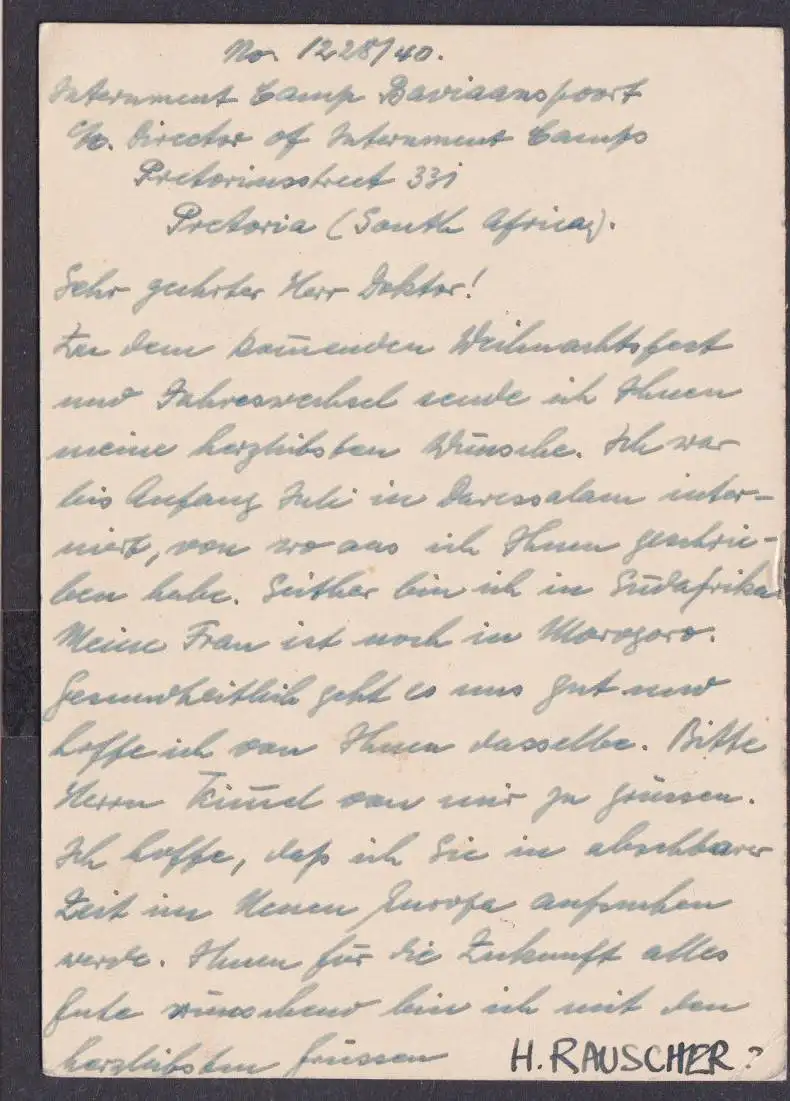 No. 1228/40.
Internment Camp Baviaanspoort
c/o. Director of Internment Camps
Pretoriusstreet 331
Pretoria (South Africa).
Sehr geehrter Herr Doktor!
Zu dem kom̄enden Weihnachtsfest
und Jahreswechsel sende ich Ihnen
meine herzlichsten Wünsche. Ich war
bis Anfang Juli in Daressalam inter-
niert, von wo aus ich Ihnen geschrie-
ben habe. Seither bin ich in Südafrika.
Meine Frau ist noch in Morogoro.
Gesundheitlich geht es uns gut und
hoffe ich von Ihnen dasselbe. Bitte
Herrn von mir zu grüssen.
Ich hoffe, daß ich Sie in absehbarer
Zeit im Neuen Europa aufsuchen
werde. Ihnen für die Zukunft alles
Gute wünschend bin ich mit den
herzlichsten Grüssen H. RAUSCHER?